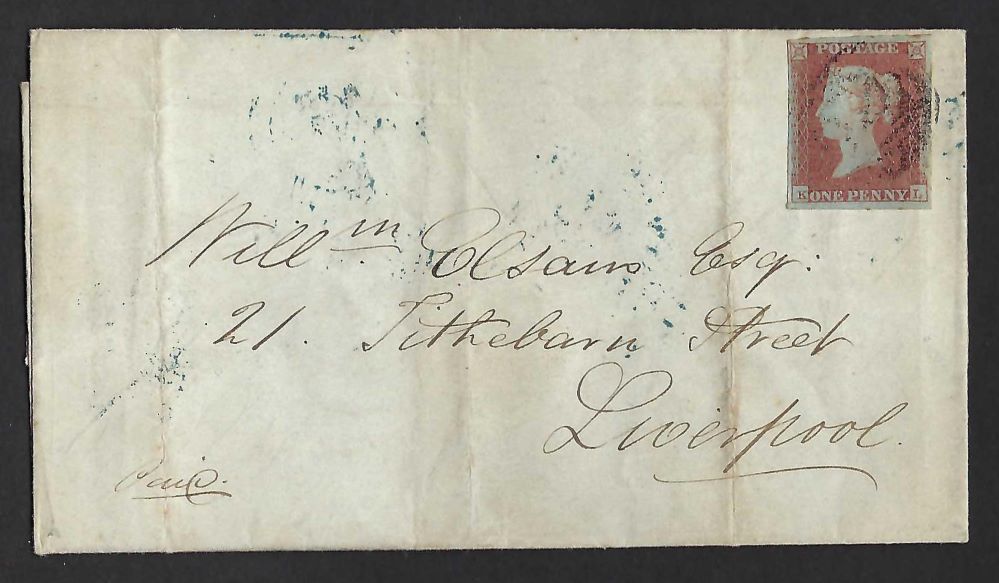 POSTAGE
K ONE PENNY L
Will<sup>m</sup> Elsam Esq:
21. Tithebarn Street
Liverpool.
Paid.